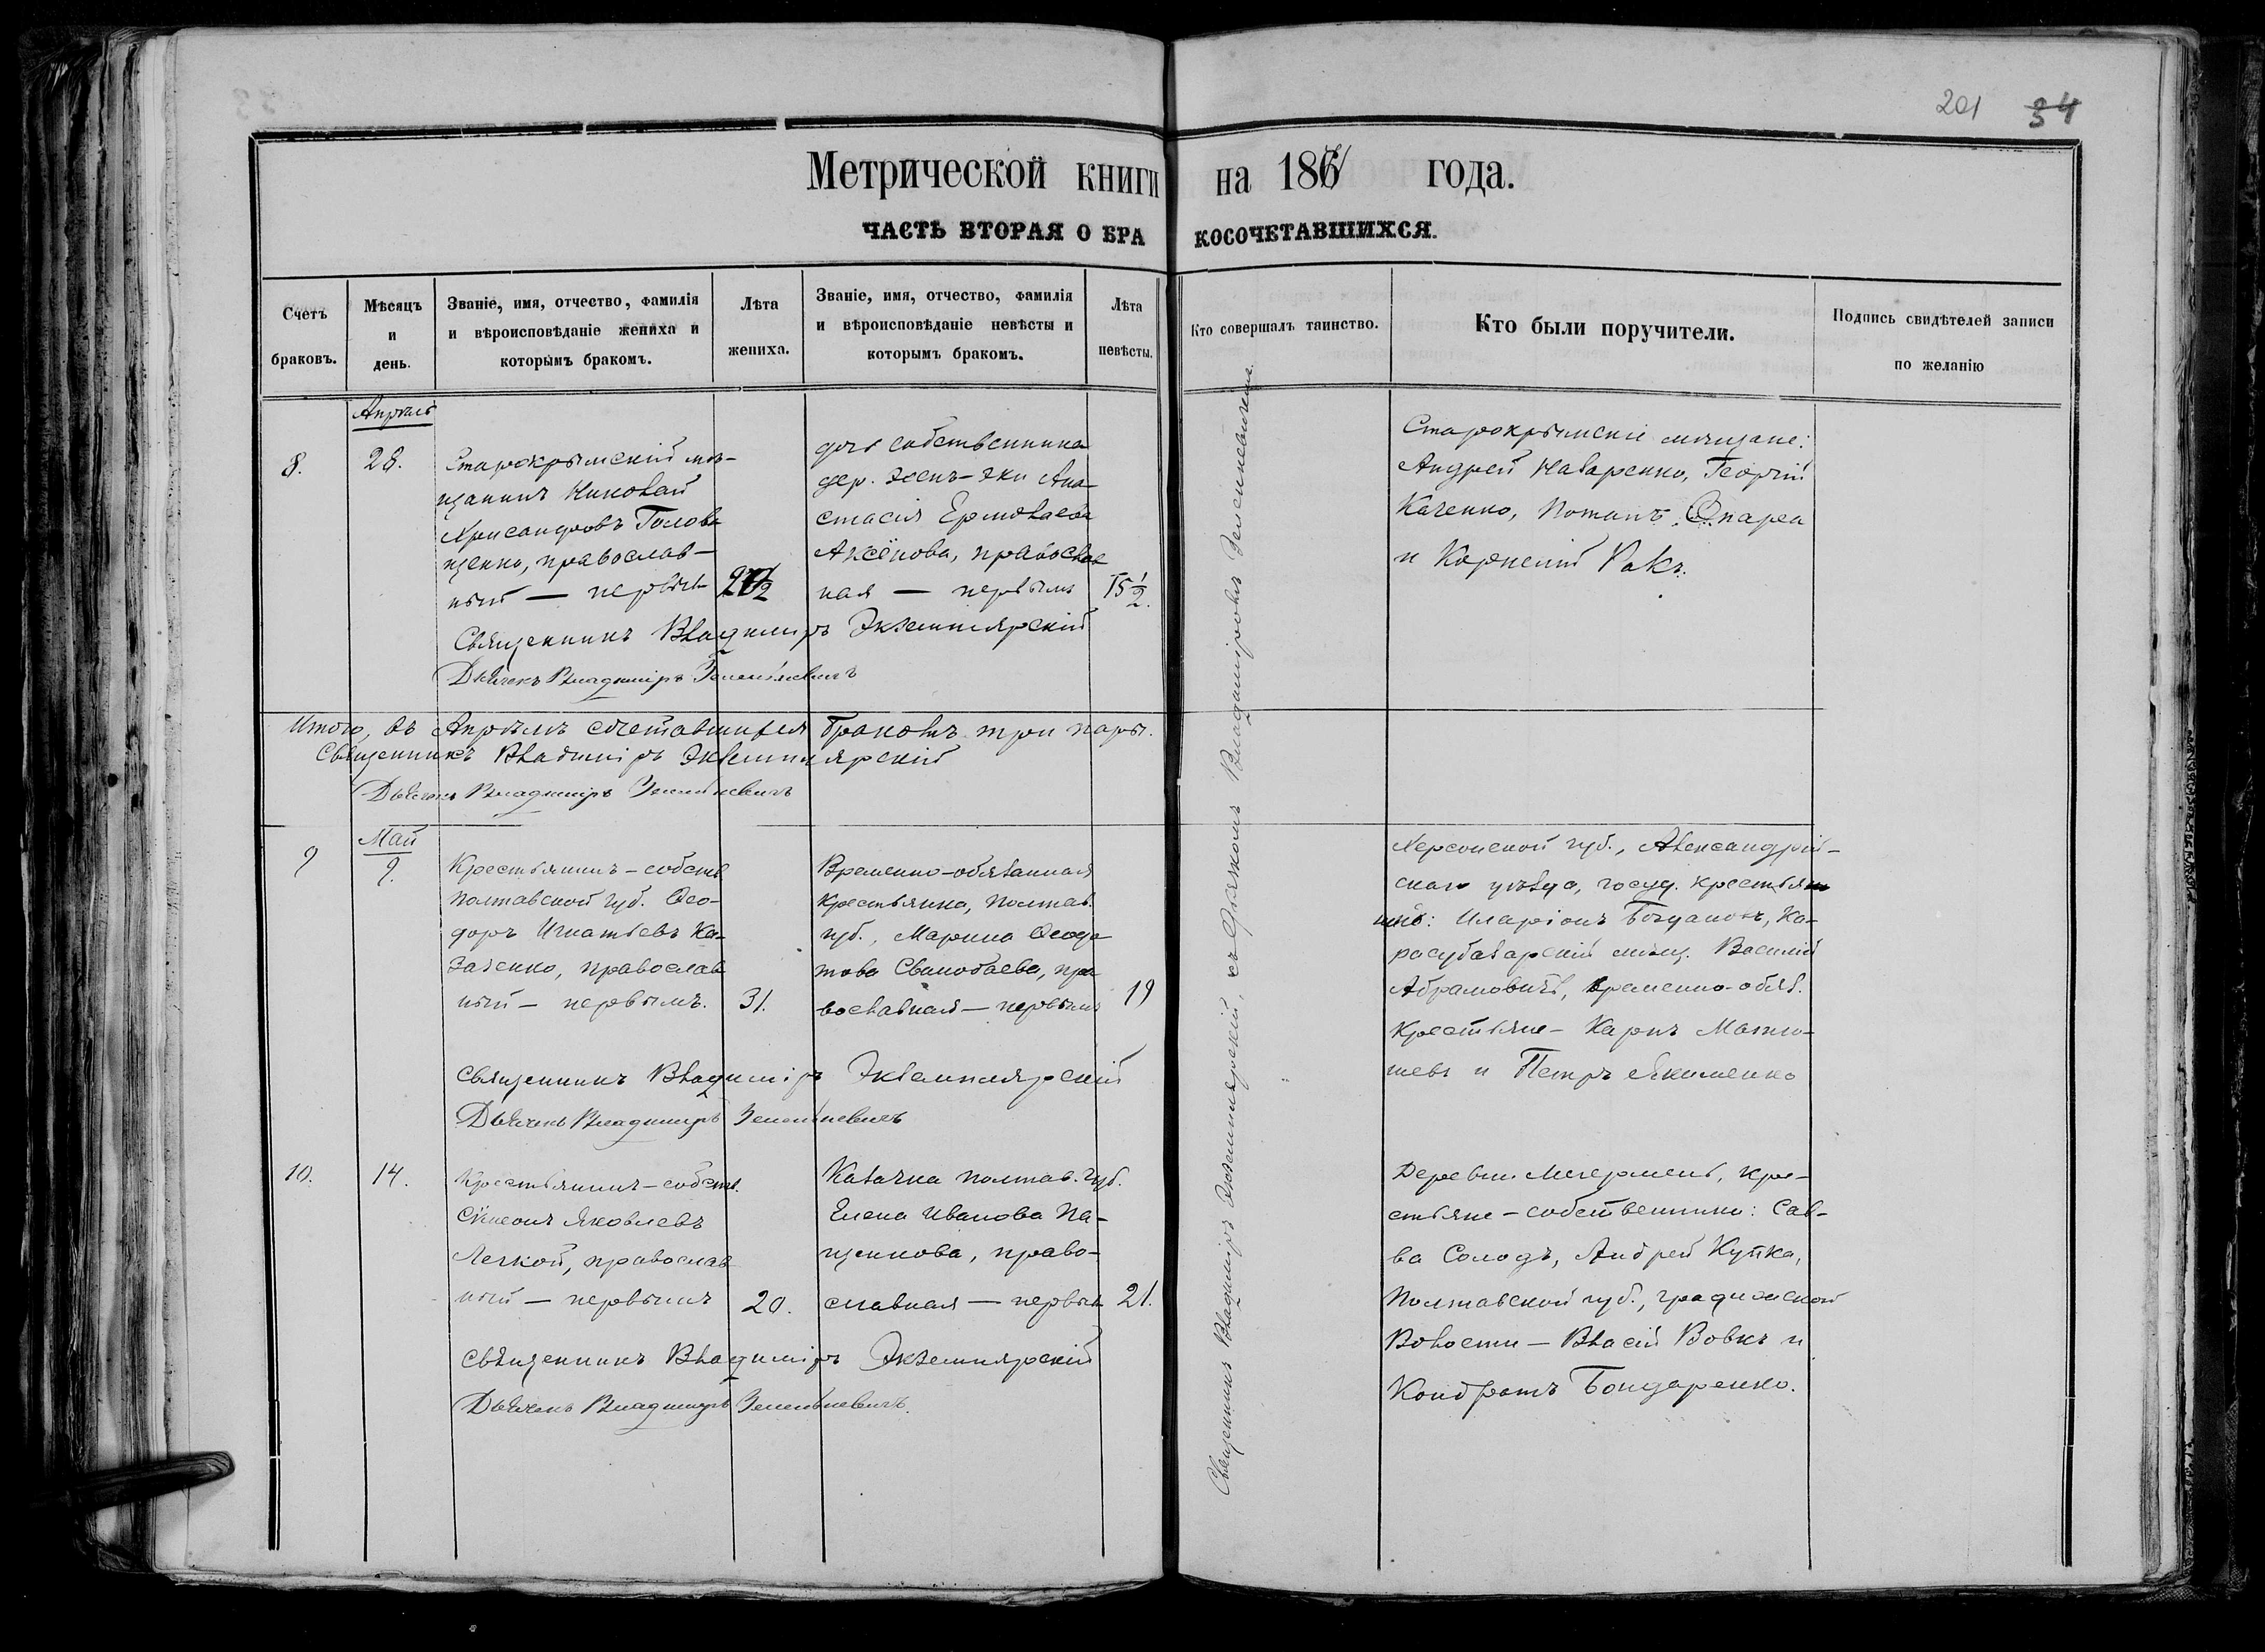 201 34
Метрической книги на 1871 года.
ЧАСТЬ ВТОРАЯ О БРАКОСОЧЕТАВШИХСЯ.
Счетъ
браковъ.
Мѣсяцъ
и
день.
Званіе, имя, отчество, фамилія
и вѣроисповѣданіе жениха и
которымъ бракомъ.
Лѣта
жениха.
Званіе, имя, отчество, фамилія
и вѣроисповѣданіе невѣсты и
которымъ бракомъ.
Лѣта
невѣсты.
Кто совершалъ таинство.
Кто были поручители.
Подпись свидѣтелей записи
по желанію
Апрѣль
8.
28.
Старокрымскій мѣ-
щанинъ Николай
Хрисанфовъ Голова
щенко, православ-
ный — первым
дочь собственника
дер. Эсенъ-Эки Ана-
стасія Ермолаева
Аксёнова, православ
ная — первымъ
15 1/2.
Старокрымскіе мѣщане:
Андрей Назаренко, Георгій
Каченко, Потапъ Опареа
и Корнелій Ракъ.
Священникъ Владиміръ Экземплярскій
Дьячекъ Владиміръ Зеленкевичъ
Итого, въ Апрѣлѣ сочетавшихся бракомъ три пары.
Священникъ Владиміръ Экземплярскій
Дьячекъ Владиміръ Зеленкевичъ
Май
9
9.
Крестьянинъ-собств
Полтавской губ. Ѳео-
доръ Игнатьевъ Ка-
заченко, православ
ный — первымъ.
31.
Временно-обязанная
крестьянка, Полтав.
губ., Марина Ѳеодо
това Свинобаева, пра
вославная — первымъ
19
Херсонской губ., Александрій-
скаго уѣзда, госуд. крестьян
инъ: Иларіонъ Богдановъ, Ка-
расубазарскій мѣщ. Василій
Абрамовичъ, временно-обяз.
крестьяне — Карпъ Матю-
шевъ и Петръ Якименко
Священникъ Владиміръ Экземплярскій
Дьячекъ Владиміръ Зеленкевичъ
10.
14.
Крестьянинъ-собств.
Сѵмеонъ Яковлевъ
Легкой, православ
ный — первымъ
20.
Казачка Полтав. губ.
Елена Иванова Па-
щенкова, право-
славная — первым
21.
Деревни Мечермень, кре-
стьяне-собственники: Сав-
ва Солодъ, Андрей Кутка,
Полтавской губ., градижской
Волости — Власій Вовкъ и
Кондратъ Бондаренко.
Священникъ Владиміръ Экземплярскій
Дьячекъ Владиміръ Зеленкевичъ.
Священникъ Владиміръ Экземплярскій, съ Дьячкомъ Владиміромъ Зеленкевичемъ.